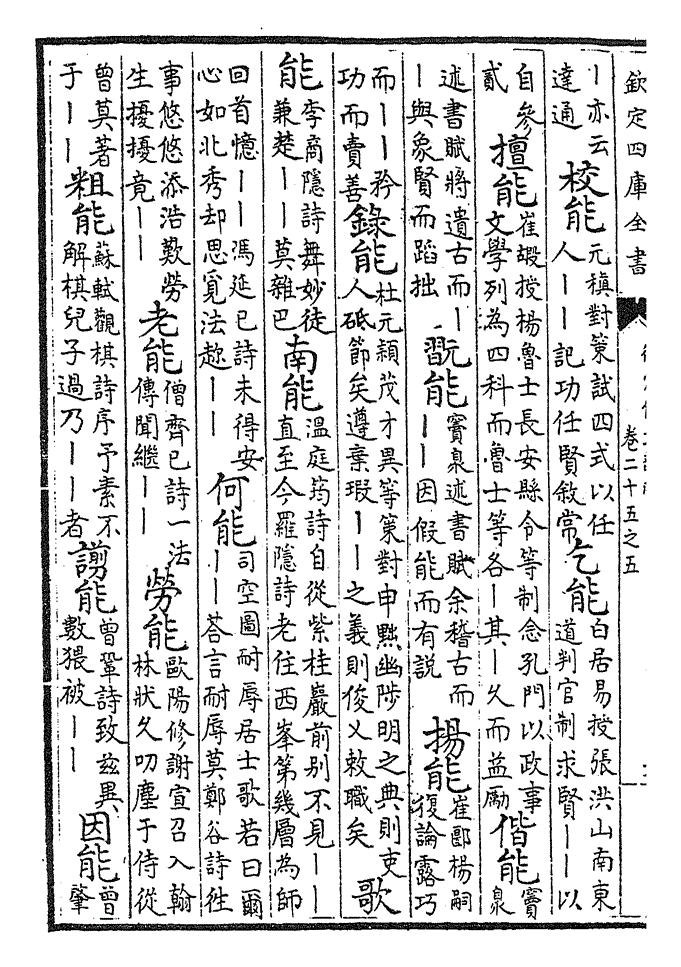 欽定四庫全書
卷二十五之五
｜亦云達通 校能 元稹對策試四式以任人｜｜記功任賢敘常 乞能 白居易授張洪山南東道判官制求賢｜｜以
自參貳 擅能 崔嘏授楊魯士長安縣令等制念孔門以政事文學列為四科而魯士等各｜其｜久而益勵 偕能 竇臮
述書賦將遺古而｜｜與象賢而蹈拙 翫能 竇臮述書賦余稽古而｜｜因假能而有説 揚能 崔郾楊嗣復論露巧
而｜｜矜功而賣善 錄能 杜元穎茂才異等策對申黜幽陟明之典則吏人砥節矣遵棄瑕｜｜之義則俊乂敕職矣 歌
能 李商隱詩舞妙從兼楚｜｜莫雜巴 南能 溫庭筠詩自從紫桂巖前别不見｜｜直至今羅隱詩老住西峯第幾層為師
回首憶｜｜馮延已詩未得安心如北秀却思覓法趂｜｜ 何能 司空圖耐辱居士歌若曰爾｜｜荅言耐辱莫鄭谷詩徃
事悠悠添浩歎勞生擾擾竟｜｜ 老能 僧齊已詩一法傳聞繼｜｜ 勞能 歐陽修謝宣召入翰林狀久叨塵于侍從
曾莫著于｜｜ 粗能 蘇軾觀棋詩序予素不解棋兒子過乃｜｜者 謭能 曾鞏詩致兹異數猥被｜｜ 因能 曾肇